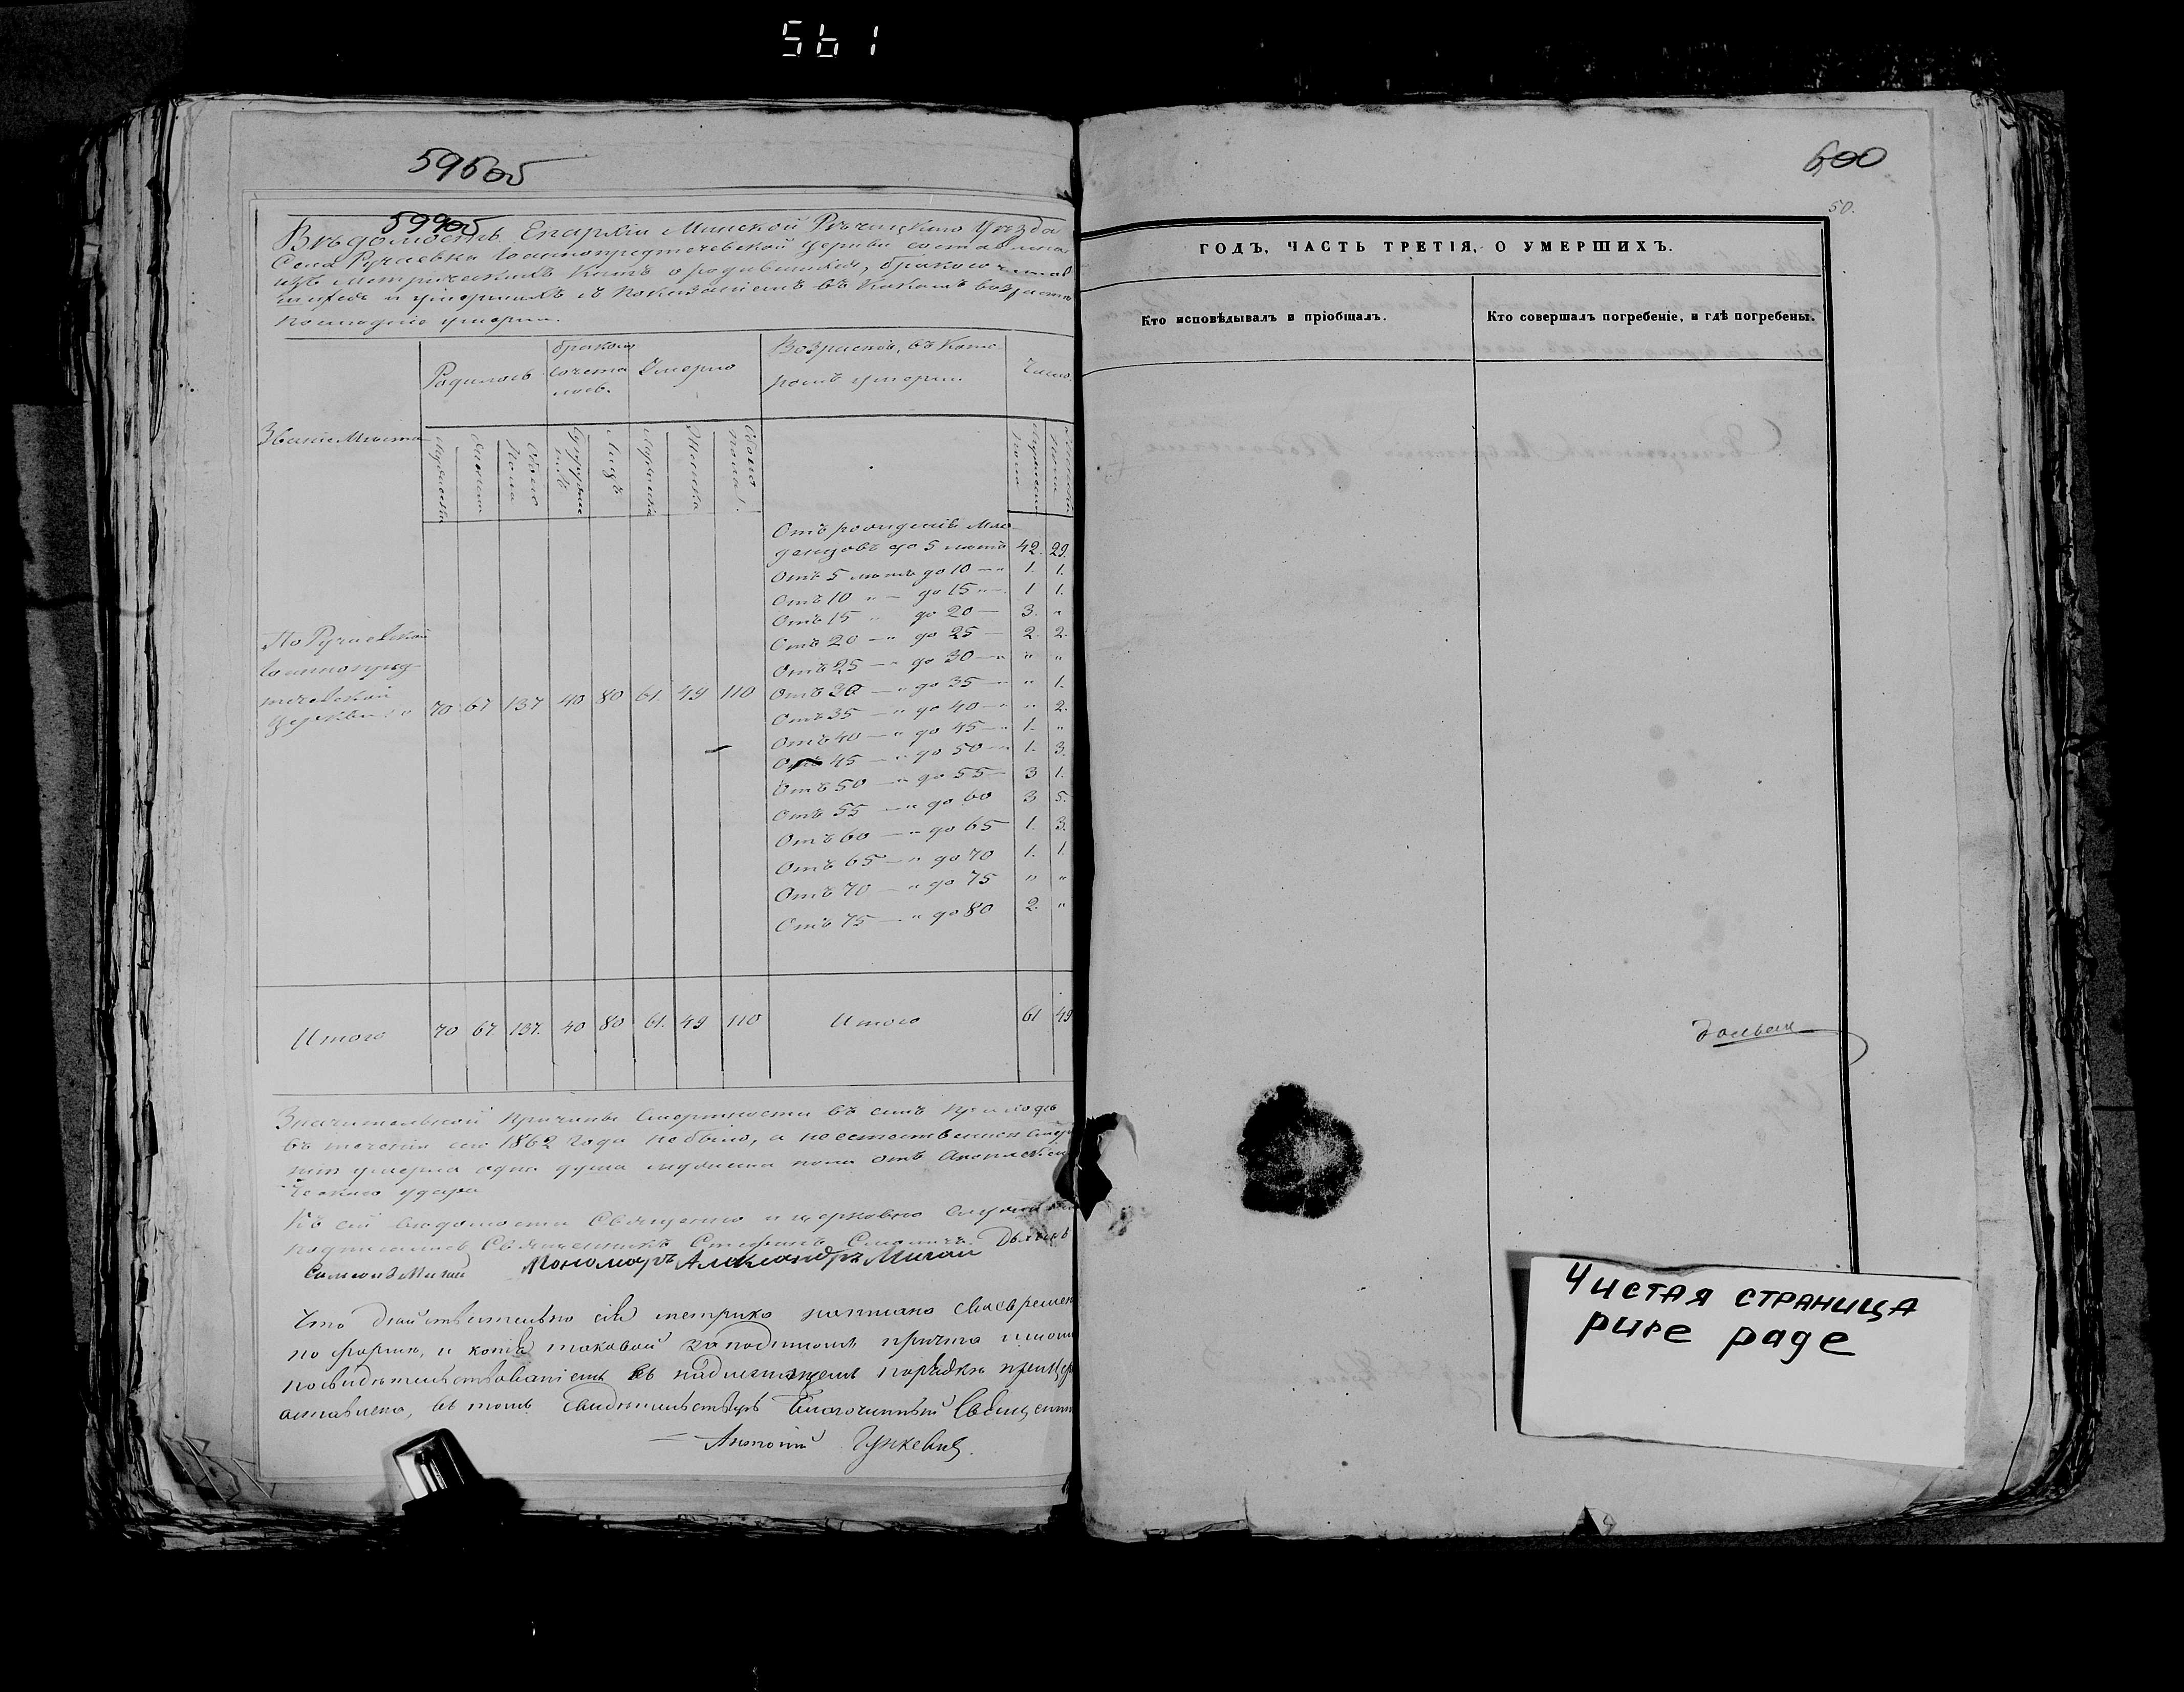 561
595об
599об
Вѣдомость Епархіи Минской Рѣчицкаго Уѣзда
Села Ручаевки Іоаннопредтечевской Церкви составлена
изъ Метрическихъ Книгъ о родившихся, бракосочетав
шихся и умершихъ съ показаніемъ въ какомъ возрастѣ
умерли.
Званіе Мѣста
Родилось
бракомъ сочета лось.
Умерло
Возрастъ, въ кото
ромъ умерли
Число.
Мужеска
Женска
Обоего Пола
Лицъ
Мужеска
Женска
Обоего пола
Отъ рожденія Мла
денцовъ до 5 лѣтъ 42. 29.
Отъ 5 лѣтъ до 10 — " 1. 1.
Отъ 10 " — до 15 " — 1 1.
Отъ 15 " до 20 — 3. "
Отъ 20 — " до 25 — 2. 2.
Отъ 25 — " до 30 — " " "
Отъ 30 — " до 35 — " " 1.
Отъ 35 — " до 40 — " " 2.
Отъ 40 — " до 45 — " 1. "
Отъ 45 — " до 50 — " 1. 3.
Отъ 50 — " до 55 — 3 1.
Отъ 55 — " до 60 3 5.
Отъ 60 — " до 65 1. 3.
Отъ 65 — " до 70 1. 1.
Отъ 70 — " до 75 " "
Отъ 75 — " до 80 2. "
По Ручаевской
Іоаннопред-
течевской
Церкви 70 67 137 40 80 61. 49 110
Итого 70 67 137. 40 80 61. 49 110 Итого 61 49
Значительной причины смертности въ семъ приходѣ
въ теченіи сего 1862 года не было, а
умерла одна душа пола отъ
удара
Къ сей вѣдомости Священно и церковно
подписались Священникъ Стефанъ Дьячекъ
Мигай Пономарь Александръ Мигай
Что дѣйствительно сія метрика написана своевремен
но формѣ, и копія таковой за подписомъ причта
посвидѣтельствованіемъ въ надлежащемъ порядкѣ при Цер
оставлена, въ томъ свидѣтельствую Благочинный Священни
— Антоній
600
50.
ГОДЪ, ЧАСТЬ ТРЕТІЯ, О УМЕРШИХЪ.
Кто исповѣдывалъ и пріобщалъ.
Кто совершалъ погребеніе, и гдѣ погребены.
Чистая страница
pure page